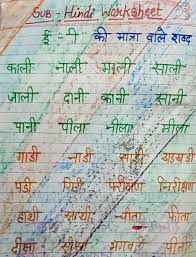 SUB - Hindi Worksheet
ई - ी की मात्रा वाले शब्द
काली नाली मछली साली
जाली दानी कानी सानी
पानी पीला नीला मीला
गाडी नाडी साडी
पडी गिरी परीक्षण निरीक्षण
हाथी साथी चीता फीता
दीक्षा